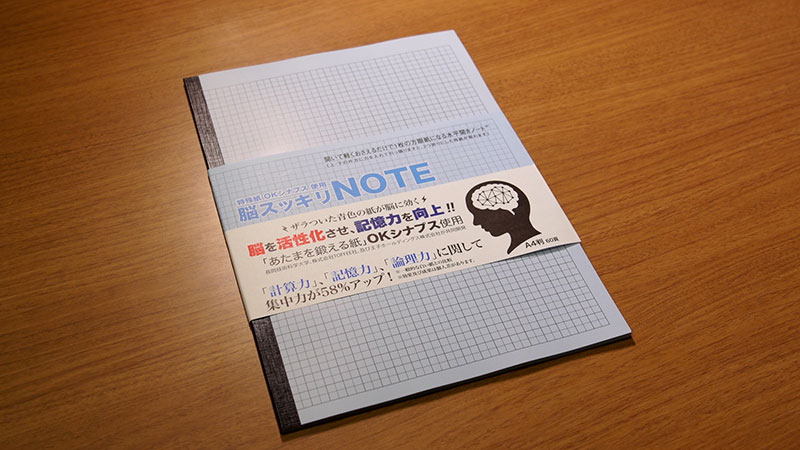 開いて軽くおさえるだけで1枚の方眼紙になる水平開きノート
特殊紙「OKシナプス」使用
脳スッキリNOTE
ザラついた青色の紙が脳に効く
脳を活性化させ、記憶力を向上!!
「あたまを鍛える紙」OKシナプス使用
「計算力」、「記憶力」、「論理力」に関して
集中力が58%アップ!
※一般的な白い紙との比較
※効果及び成果は個人差があります。
A4判 60頁